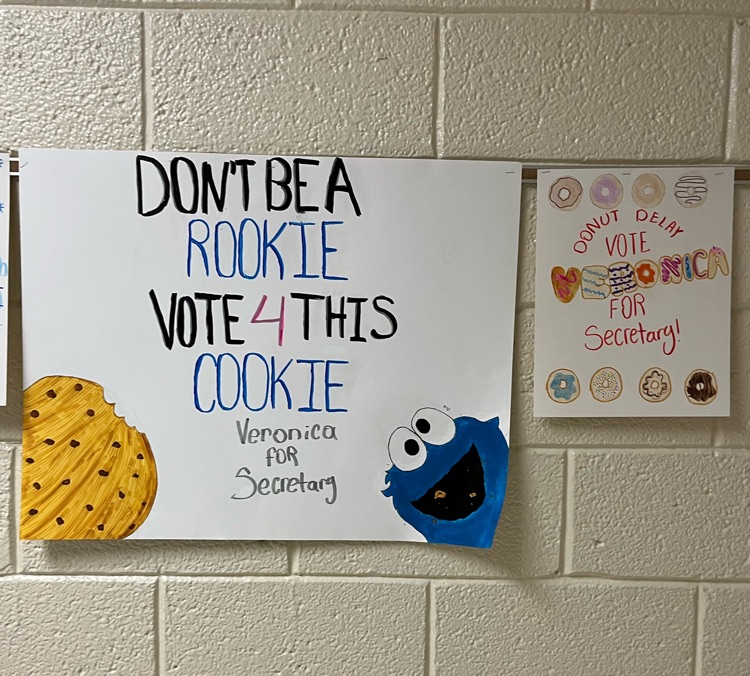 DON'T BE A
ROOKIE
VOTE 4 THIS
COOKIE
Veronica
for
Secretary
DONUT DELAY
VOTE
VERONICA
FOR
Secretary!